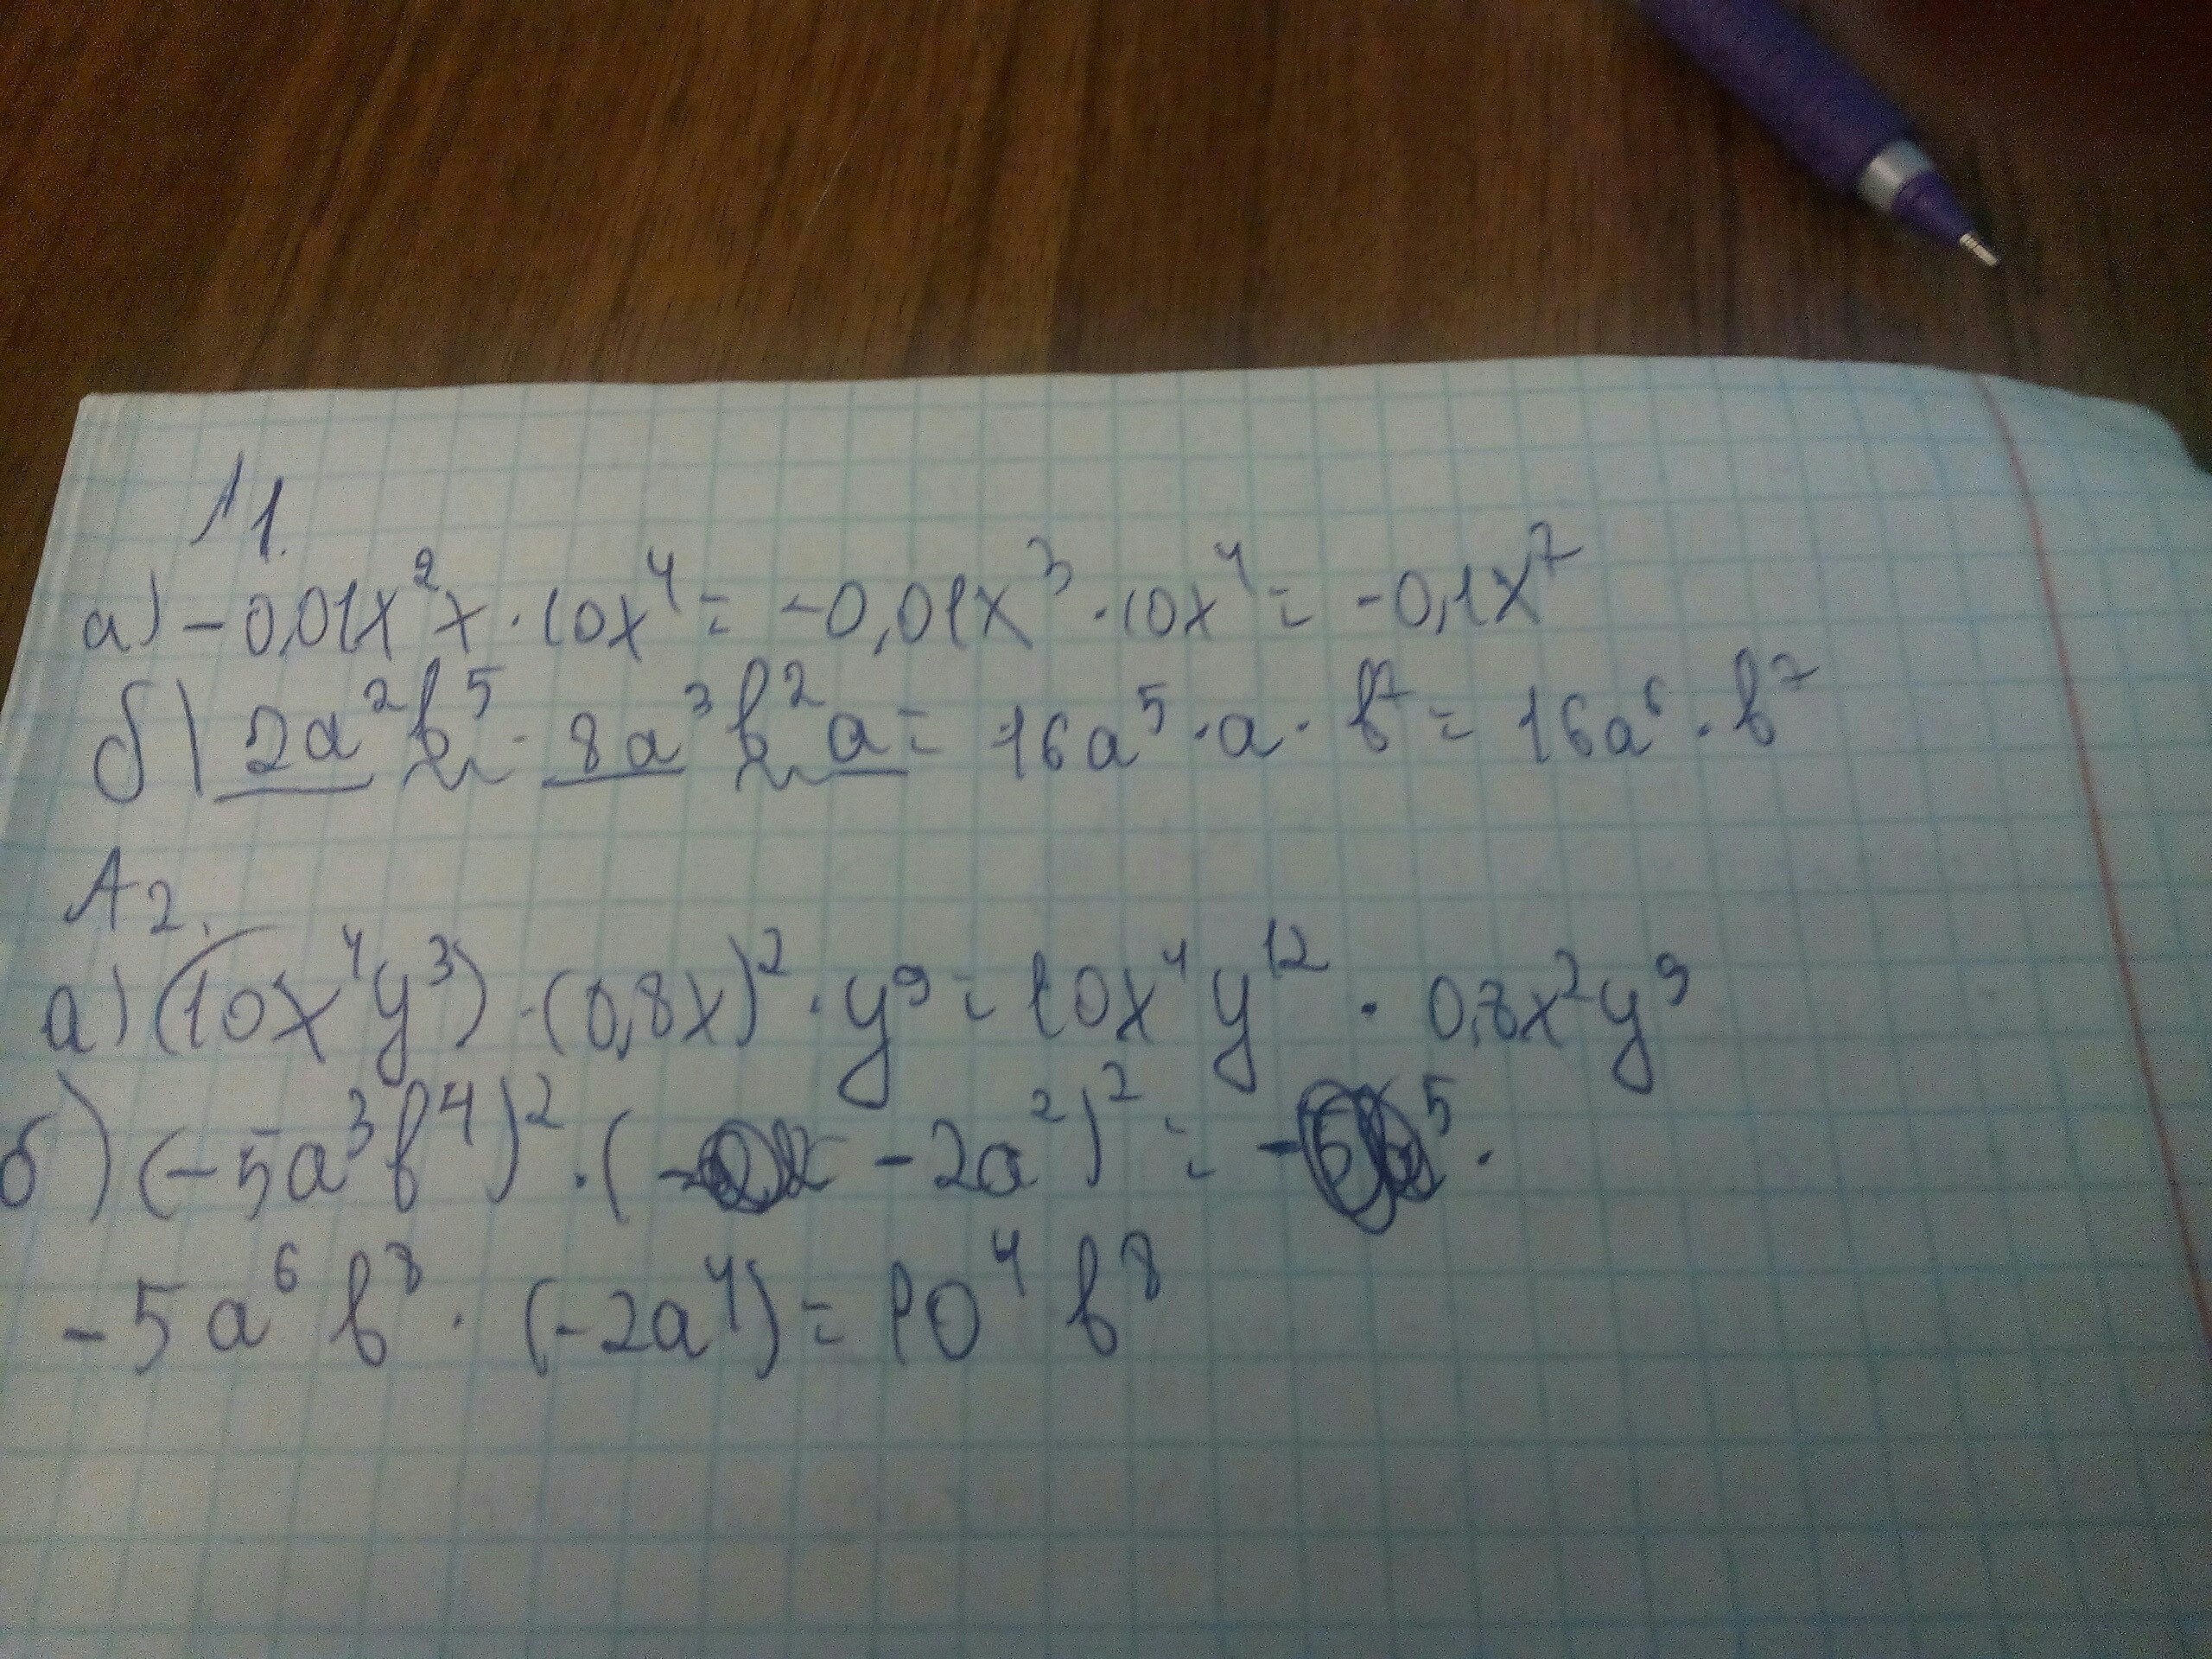 А1.
а) -0,01x²x · 10x⁴ = -0,01x³ · 10x⁴ = -0,1x⁷
б) 2a²b⁵ · 8a³b²a = 16a⁵ · a · b⁷ = 16a⁶ · b⁷
А2.
а) (10x⁴y³) · (0,8x)² · y⁹ = 10x⁴y¹² · 0,8x²y⁹
б) (-5a³b⁴)² · ( -2a²)² = - ⁵ ·
-5a⁶b⁸ · (-2a⁴) = 10⁴b⁸